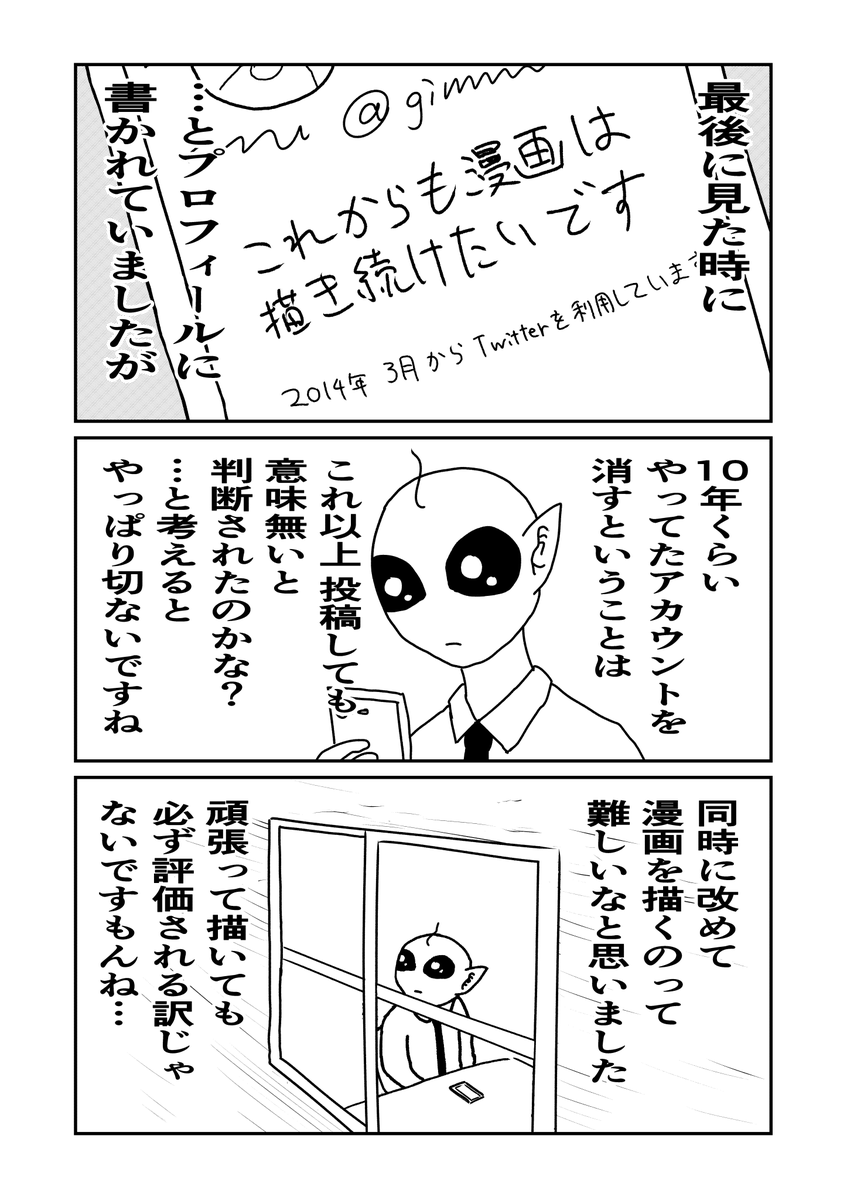 最後に見た時に
@gimm
これからも漫画は
描き続けたいです
2014年 3月から Twitterを利用しています
…とプロフィールに
書かれていましたが
10年くらい
やってたアカウントを
消すということは
これ以上投稿しても
意味無いと
判断されたのかな?
…と考えると
やっぱり切ないですね
同時に改めて
漫画を描くのって
難しいなと思いました
頑張って描いても
必ず評価される訳じゃ
ないですもんね…